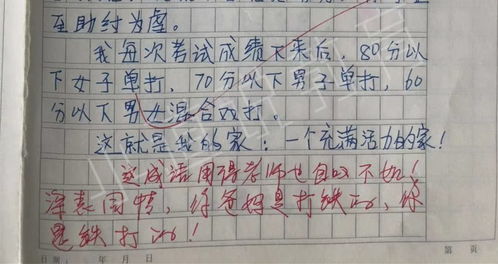 至助纣为虐。
我每次考试成绩下来后，80分以
下女子单打，70分以下男子单打，60
分以下男女混合双打。
这就是我的家：一个充满活力的家！
这成语用得老师也自叹不如！
深表同情，你爸妈是打铁的，你
是铁打的！
日期： 年 月 日 第 页